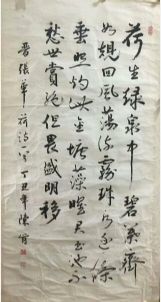 荷生绿泉中碧葉齊
如規回風蕩流霧珠水逐條
垂照灼此金塘藻曜君王池不
愁世賞絕但畏盛明移
晋張華荷詩一首丁丑年陳